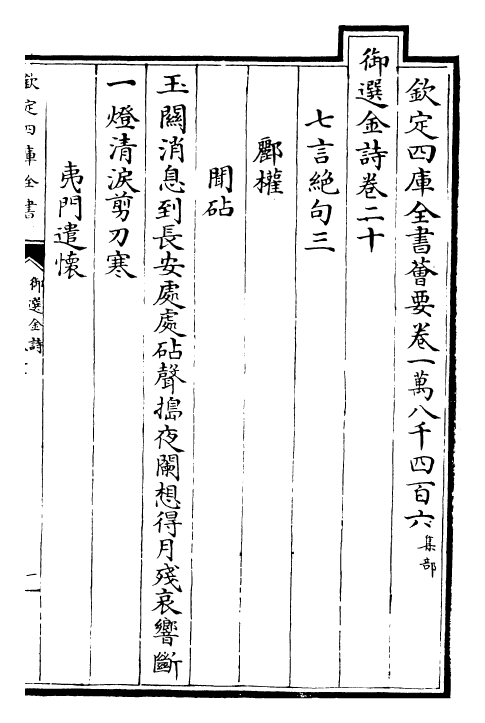 欽定四庫全書薈要卷一萬八千四百六集部
御選金詩卷二十
七言絶句三
酈權
聞砧
玉闗消息到長安處處砧聲搗夜闌想得月殘哀響斷
一燈清淚剪刀寒
夷門遣懷
欽定四庫全書
御選金詩